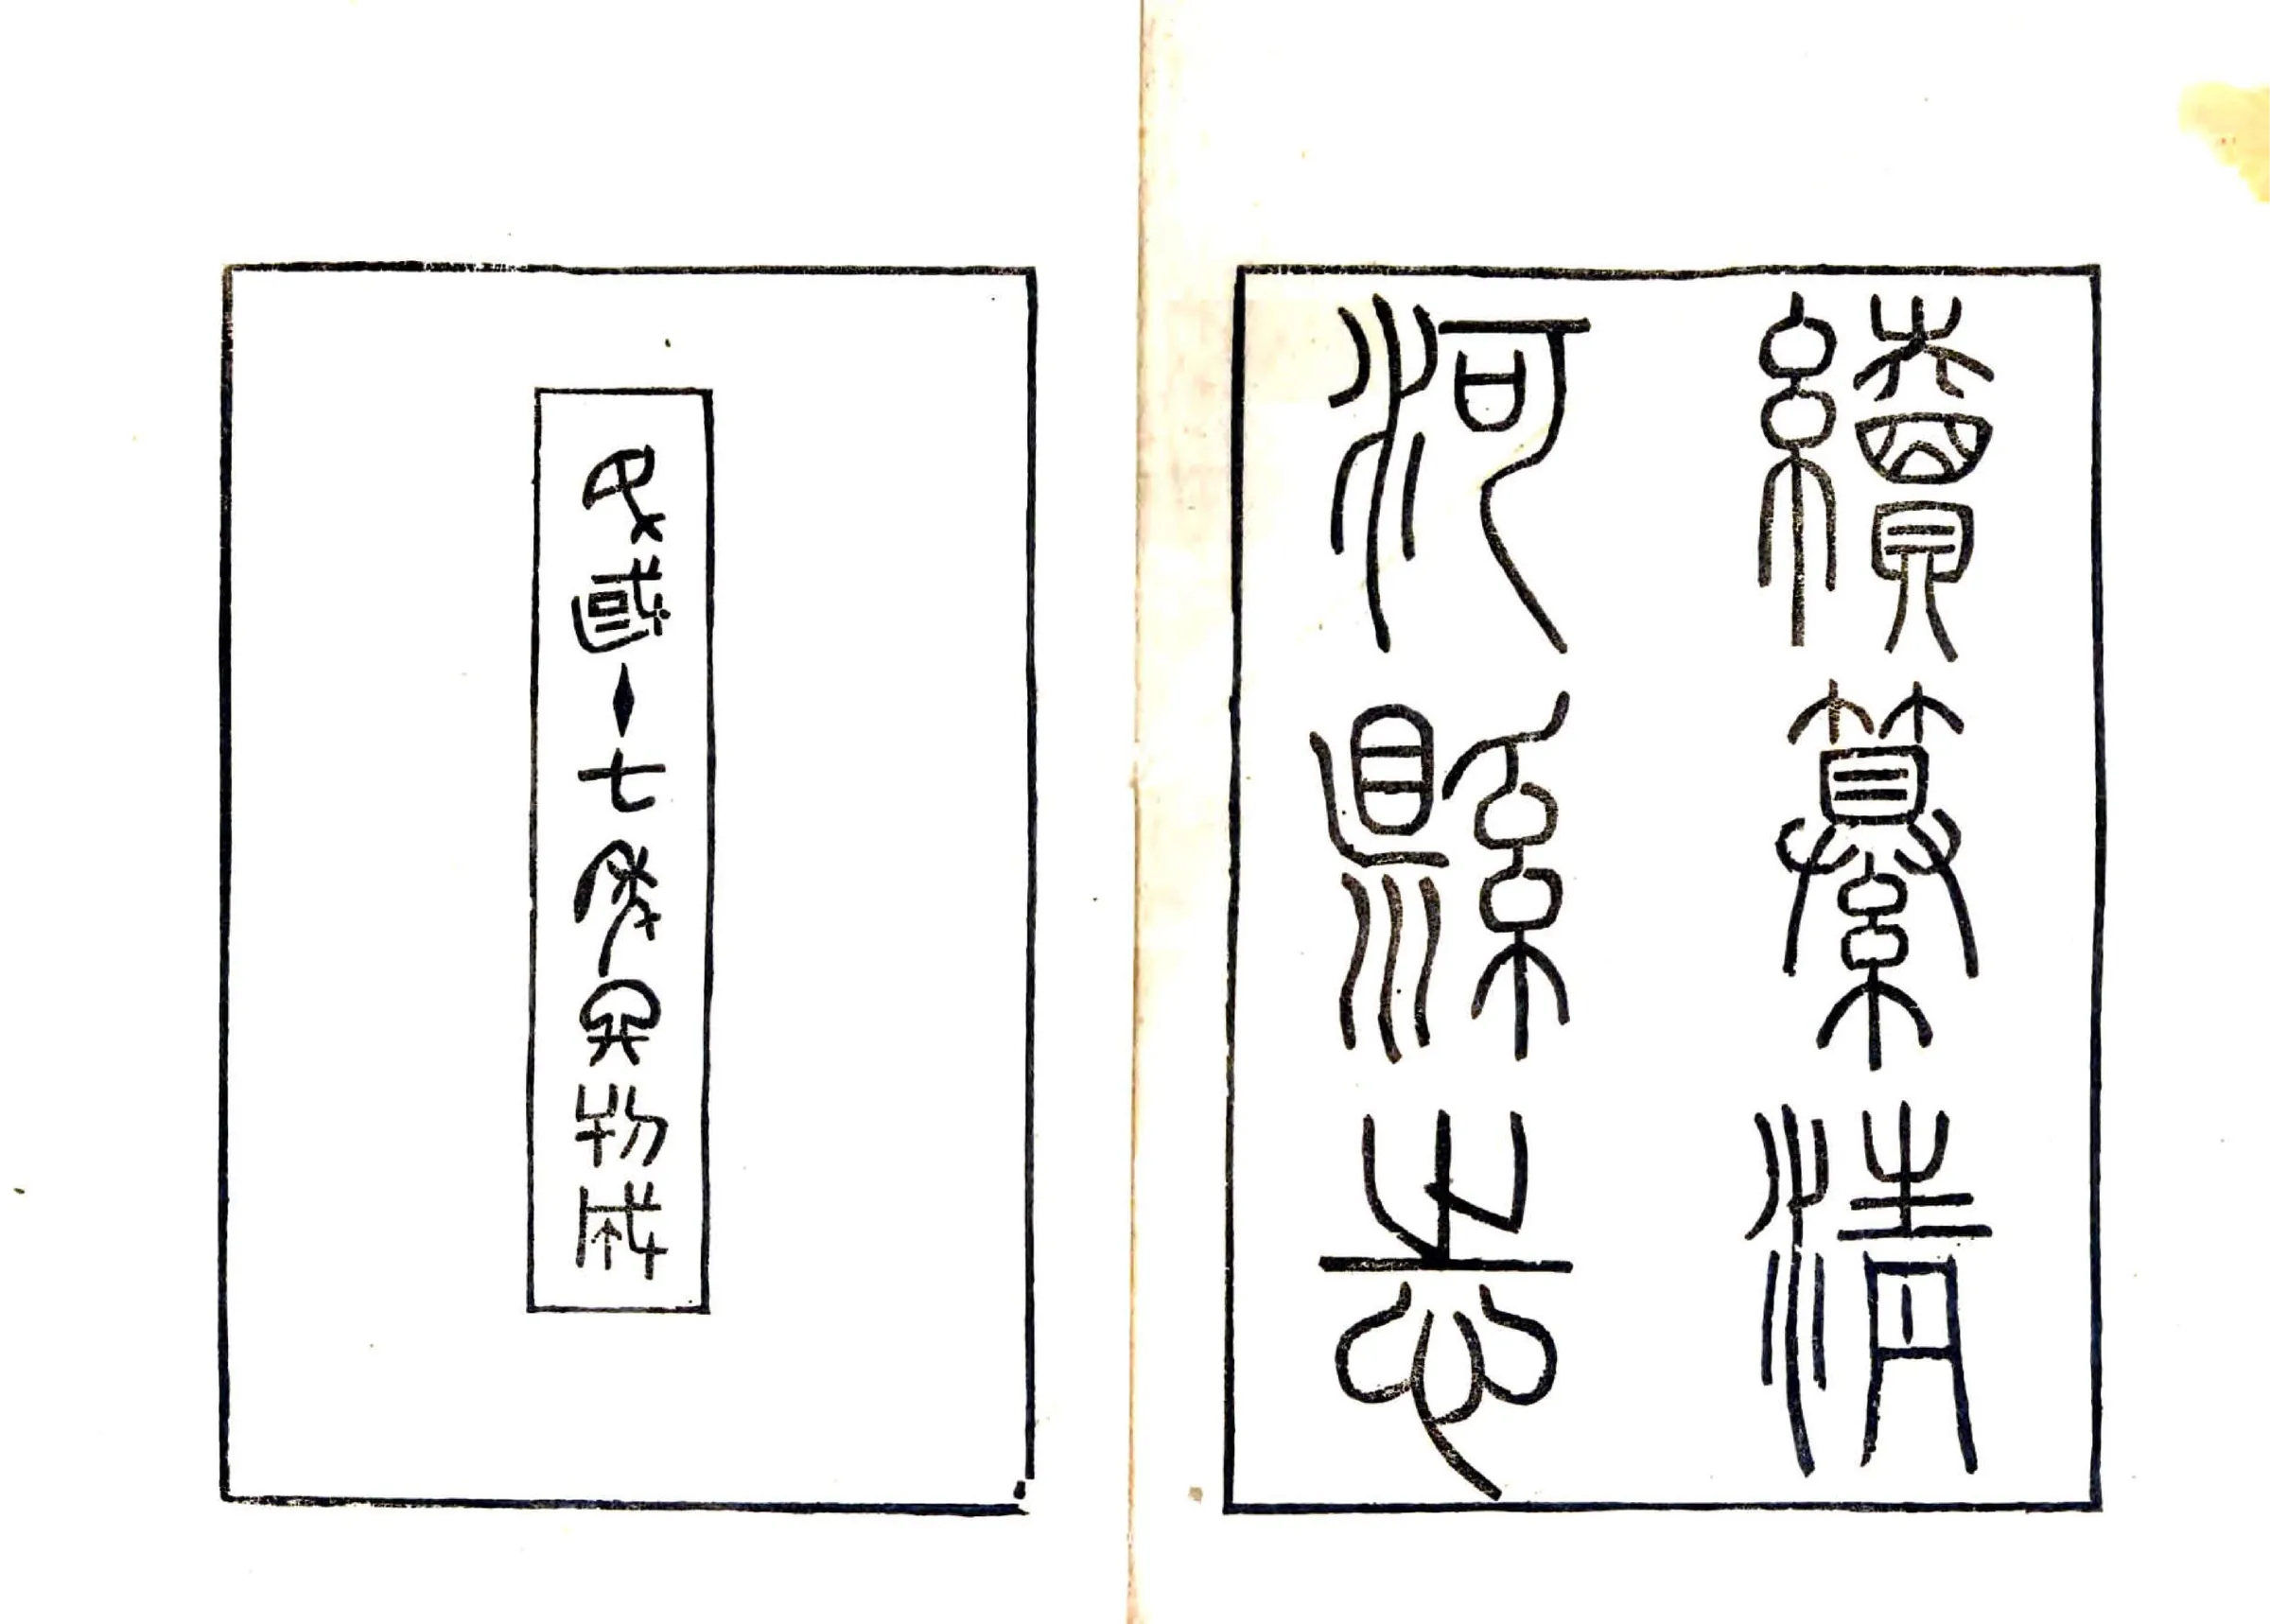 續纂清
河縣志
民國十七年物成